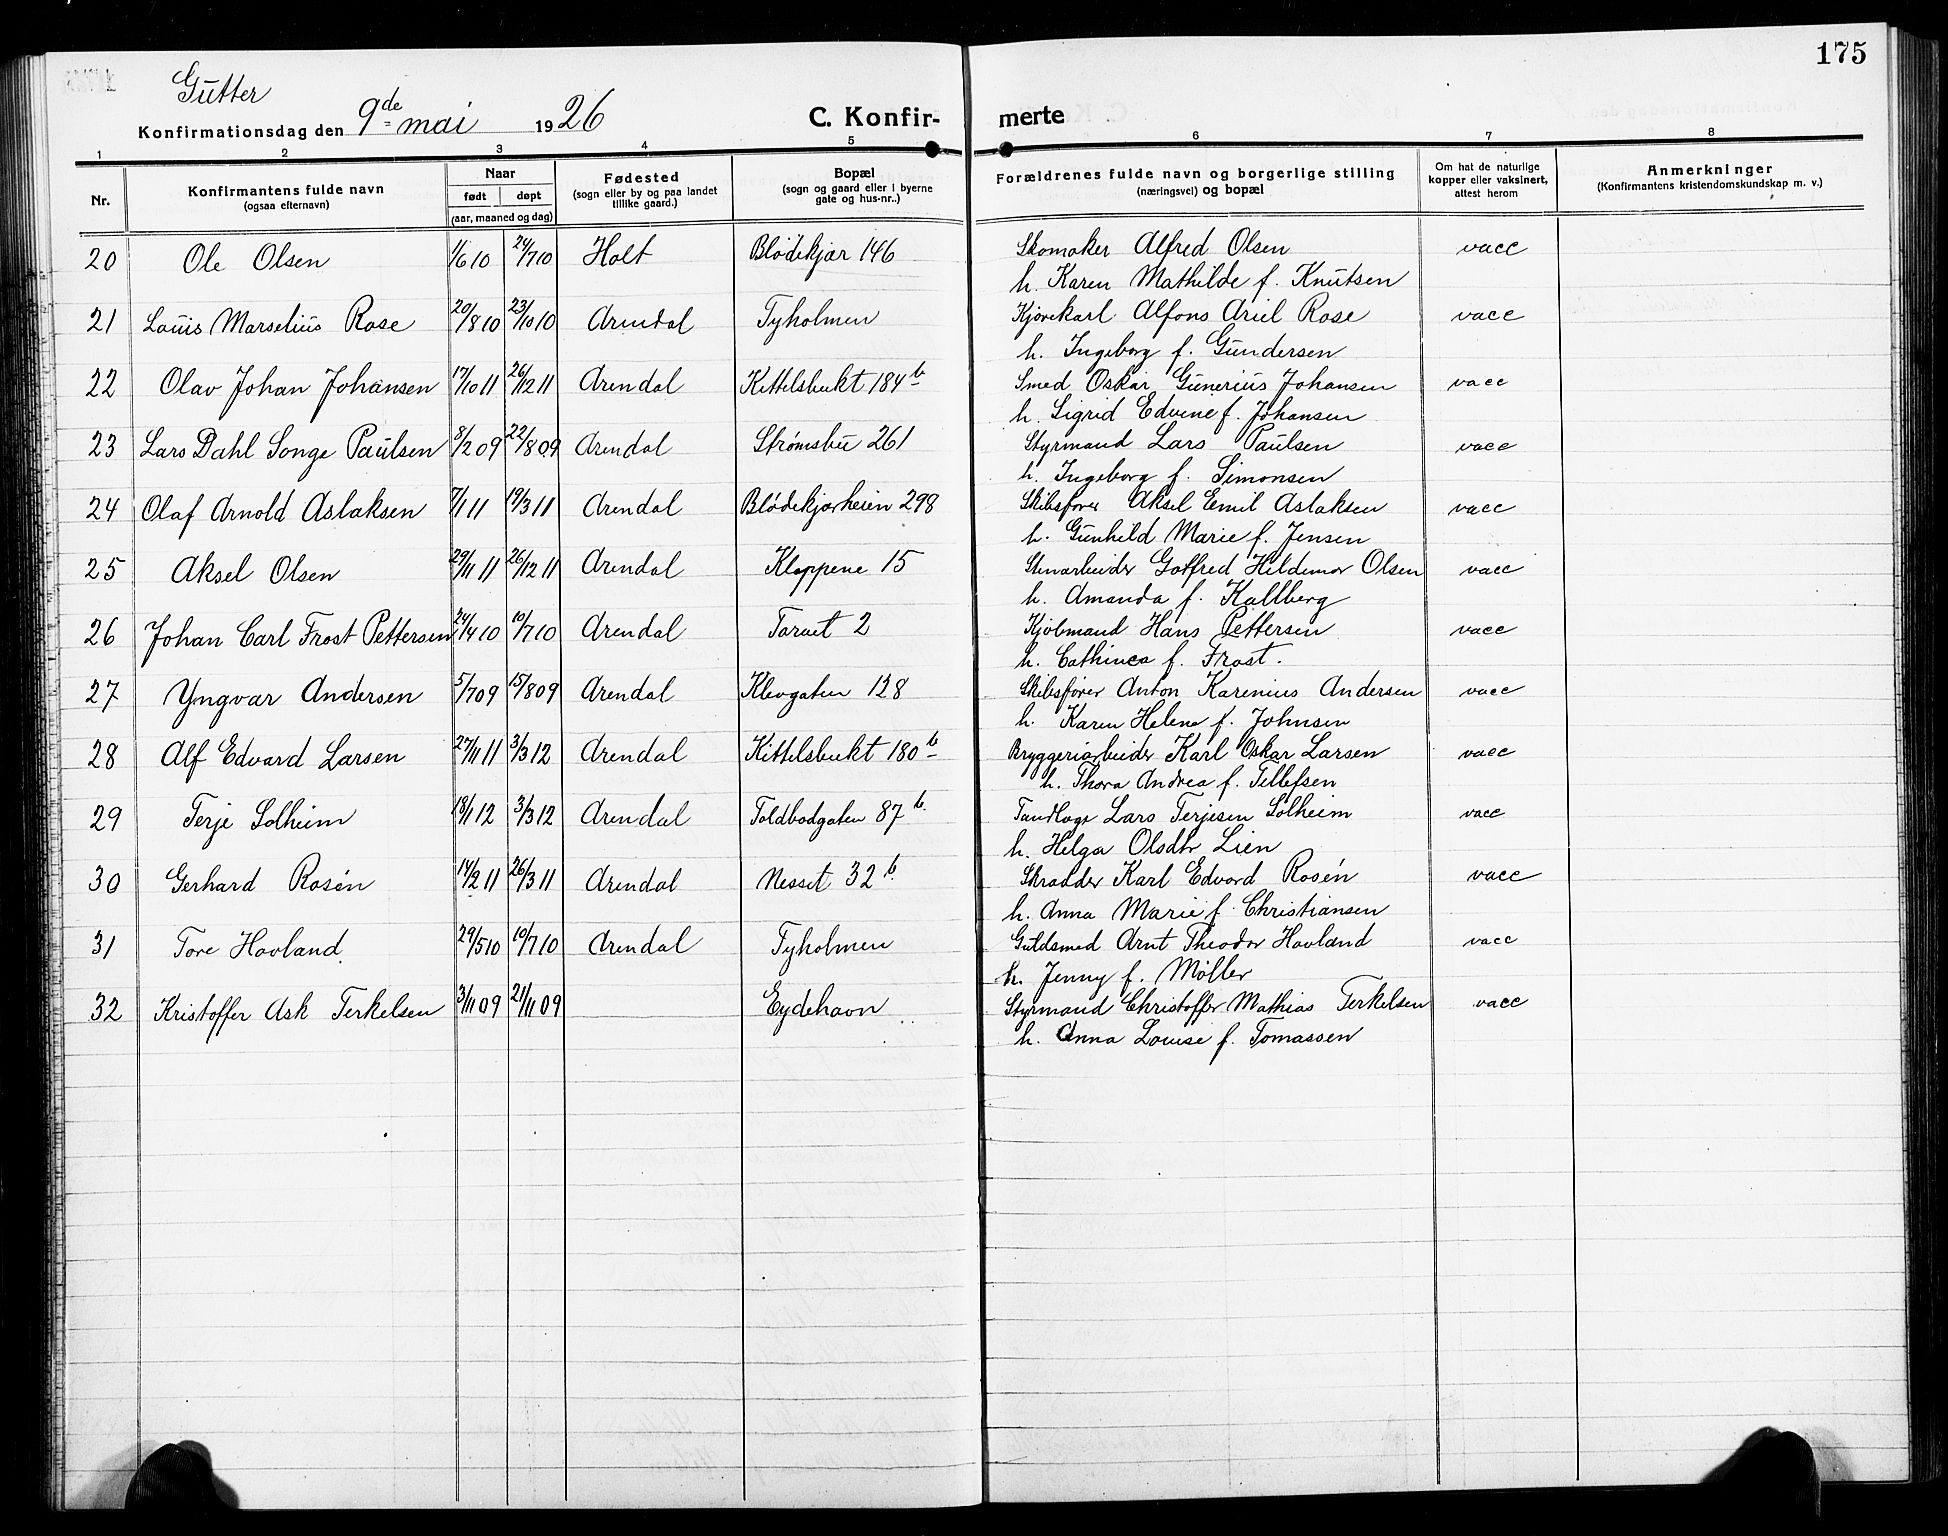 175
Gutter
Konfirmationsdag den 9de mai 1926 C. Konfir- merte
1 2 3 4 5 6 7 8
Nr. Konfirmantens fulde navn (ogsaa efternavn) Naar født døpt (aar, maaned og dag) Fødested (sogn eller by og paa landet tillike gaard.) Bopæl (sogn og gaard eller i byerne gate og hus-nr..) Forældrenes fulde navn og borgerlige stilling (næringsvei) og bopæl Om hat de naturlige kopper eller vaksinert, attest herom Anmerkninger (Konfirmantens kristendomskundskap m. v.)
20 Ole Olsen 1/6 10 24/7 10 Holt Blødekjær 146 Skomaker Alfred Olsen vacc
h. Karen Mathilde f. Knutsen
21 Louis Marselius Rose 20/8 10 23/10 10 Arendal Tyholmen Kjørekarl Alfons Ariel Rose vacc
h. Ingeborg f. Gundersen
22 Olav Johan Johansen 17/10 11 26/12 11 Arendal Kittelsbukt 184 b Smed Oskar Gunerius Johansen vacc
h. Sigrid Edvine f. Johansen
23 Lars Dahl Songe Paulsen 8/2 09 22/8 09 Arendal Strømsbu 261 Styrmand Lars Paulsen vacc
h. Ingeborg f. Simonsen
24 Olaf Arnold Aslaksen 7/1 11 19/3 11 Arendal Blødekjærheien 298 Skibsfører Aksel Emil Aslaksen vacc
h. Gunhild Marie f. Jensen
25 Aksel Olsen 29/11 11 26/12 11 Arendal Kloppene 15 Stenarbeider Gotfred Hildemar Olsen vacc
h. Amanda f. Kallberg
26 Johan Carl Frost Pettersen 24/4 10 10/7 10 Arendal Torvet 2 Kjøbmand Hans Pettersen vacc
h. Cathinca f. Frost.
27 Yngvar Andersen 5/7 09 15/8 09 Arendal Klevgaten 128 Skibsfører Anton Karenius Andersen vacc
h. Karen Helene f. Johnsen
28 Alf Edvard Larsen 27/11 11 3/3 12 Arendal Kittelsbukt 180 b Bryggeriarbeider Karl Oskar Larsen vacc
h. Thora Andrea f. Tellefsen
29 Terje Solheim 18/1 12 3/3 12 Arendal Toldbodgaten 87 b. Tandlæge Lars Terjesen Solheim vacc
h. Helga Olsdtr Lien
30 Gerhard Rosén 14/2 11 26/3 11 Arendal Nesset 32 b. Skrædder Karl Edvard Rosén vacc
h. Anna Marie f. Christiansen
31 Tore Hovland 29/5 10 10/7 10 Arendal Tyholmen Guldsmed Arnt Theodor Hovland vacc
h. Jenny f. Møller
32 Kristoffer Ask Terkelsen 3/11 09 21/11 09 Eydehavn Styrmand Christoffer Mathias Terkelsen vacc
h. Anna Louise f. Tomassen